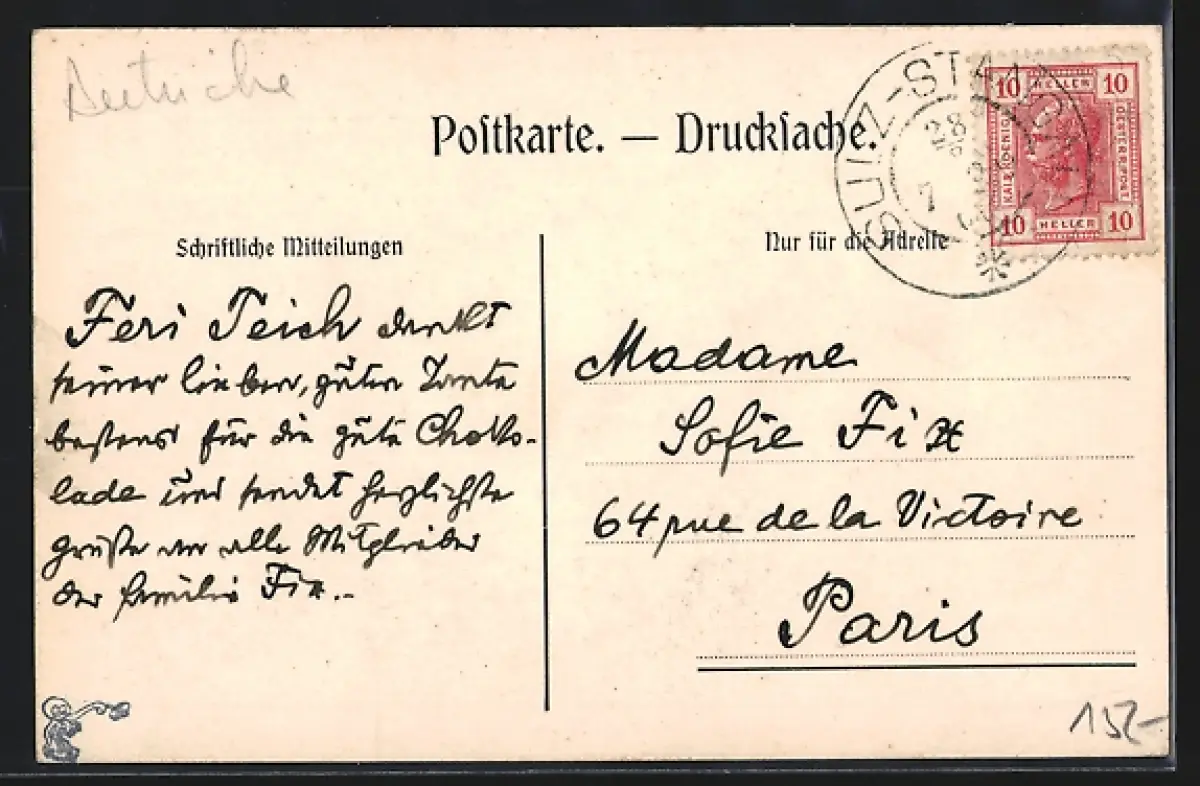 Autriche
Poſtkarte. — Druckſache.
SULZ-STANGAU
28
7
10 HELLER 10
KAIS. KOENIGL.
OESTERR. POST
10 HELLER 10
Schriftliche Mitteilungen
Nur für die Adreſſe
Feri Teich dankt
seiner lieben, guten Tante
bestens für die gute Choko-
lade und sendet herzlichste
Grüße an alle Mitglieder
der Familie Fix.-
Madame
Sofie Fix
64 rue de la Victoire
Paris
15Z-